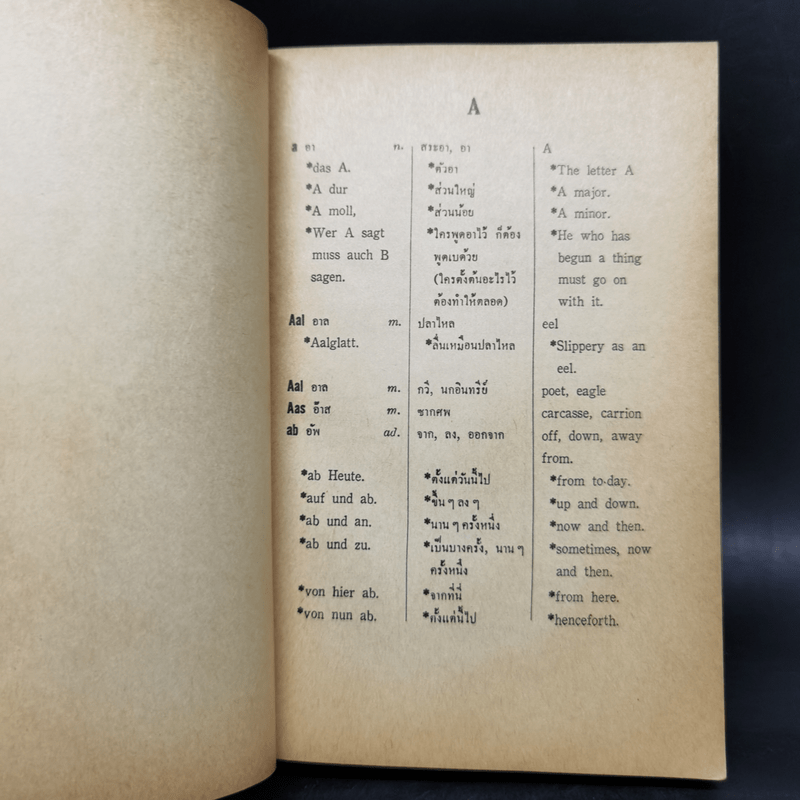 A
a อา n. สระอา, อา A
*das A. *ตัวอา *The letter A
*A dur *ส่วนใหญ่ *A major.
*A moll, *ส่วนน้อย *A minor.
*Wer A sagt *ใครพูดอาไว้ ก็ต้อง *He who has
muss auch B พูดเบด้วย begun a thing
sagen. (ใครตั้งต้นอะไรไว้ must go on
ต้องทำให้ตลอด) with it.
Aal อาล m. ปลาไหล eel
*Aalglatt. *ลื่นเหมือนปลาไหล *Slippery as an
eel.
Aal อาล m. กวี, นกอินทรีย์ poet, eagle
Aas อ๊าส m. ซากศพ carcasse, carrion
ab อัพ ad. จาก, ลง, ออกจาก off, down, away
from.
*ab Heute. *ตั้งแต่วันนี้ไป *from to-day.
*auf und ab. *ขึ้นๆ ลงๆ *up and down.
*ab und an. *นานๆ ครั้งหนึ่ง *now and then.
*ab und zu. *เป็นบางครั้ง, นานๆ *sometimes, now
ครั้งหนึ่ง and then.
*von hier ab. *จากที่นี่ *from here.
*von nun ab. *ตั้งแต่นี้ไป *henceforth.